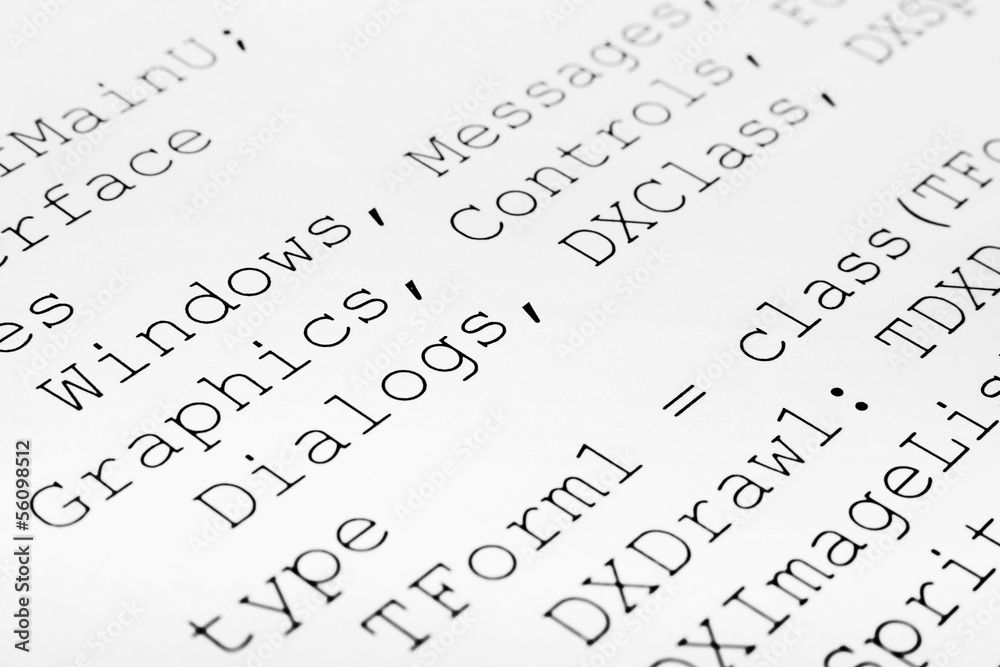 fMainU;
erface
es
Windows, Messages,
Graphics, Controls, Fo
Dialogs, DXClass, DXSp
type
TForm1 = class(TFo
DXDraw1: TDXD
DXImageLis
Sprit
Adobe Stock | #56098512